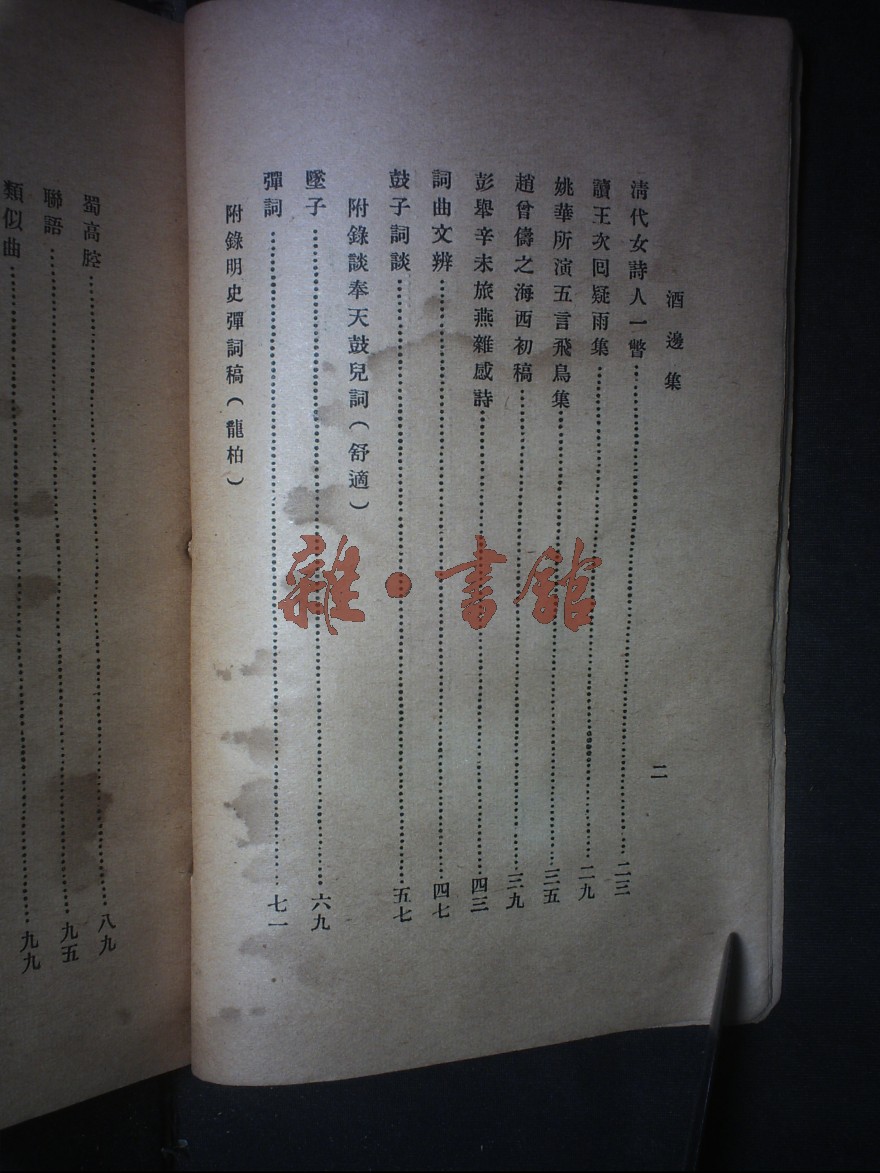 酒邊集
二
清代女詩人一瞥……二三
讀王次回疑雨集……二九
姚華所演五言飛鳥集……三五
趙曾儔之海西初稿……三九
彭舉辛未旅燕雜感詩……四三
詞曲文辨……四七
鼓子詞談……五七
附錄談奉天鼓兒詞(舒適)
墜子……六九
彈詞……七一
附錄明史彈詞稿(龍柏)
蜀高腔……八九
聯語……九五
類似曲……九九
雜·書館